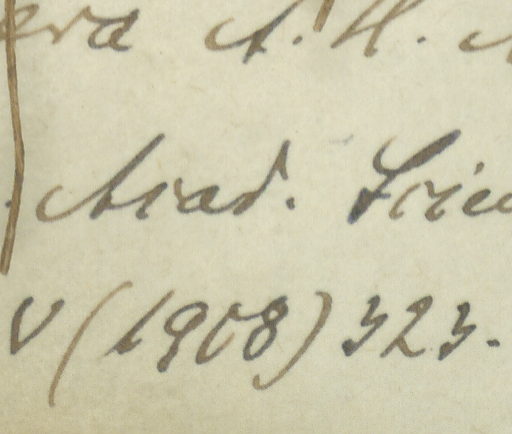 era A. H.
Acad. Scien
V (1908) 323.